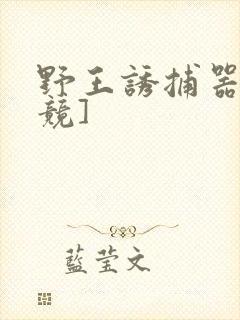 野王誘捕器
競]
藍莹文